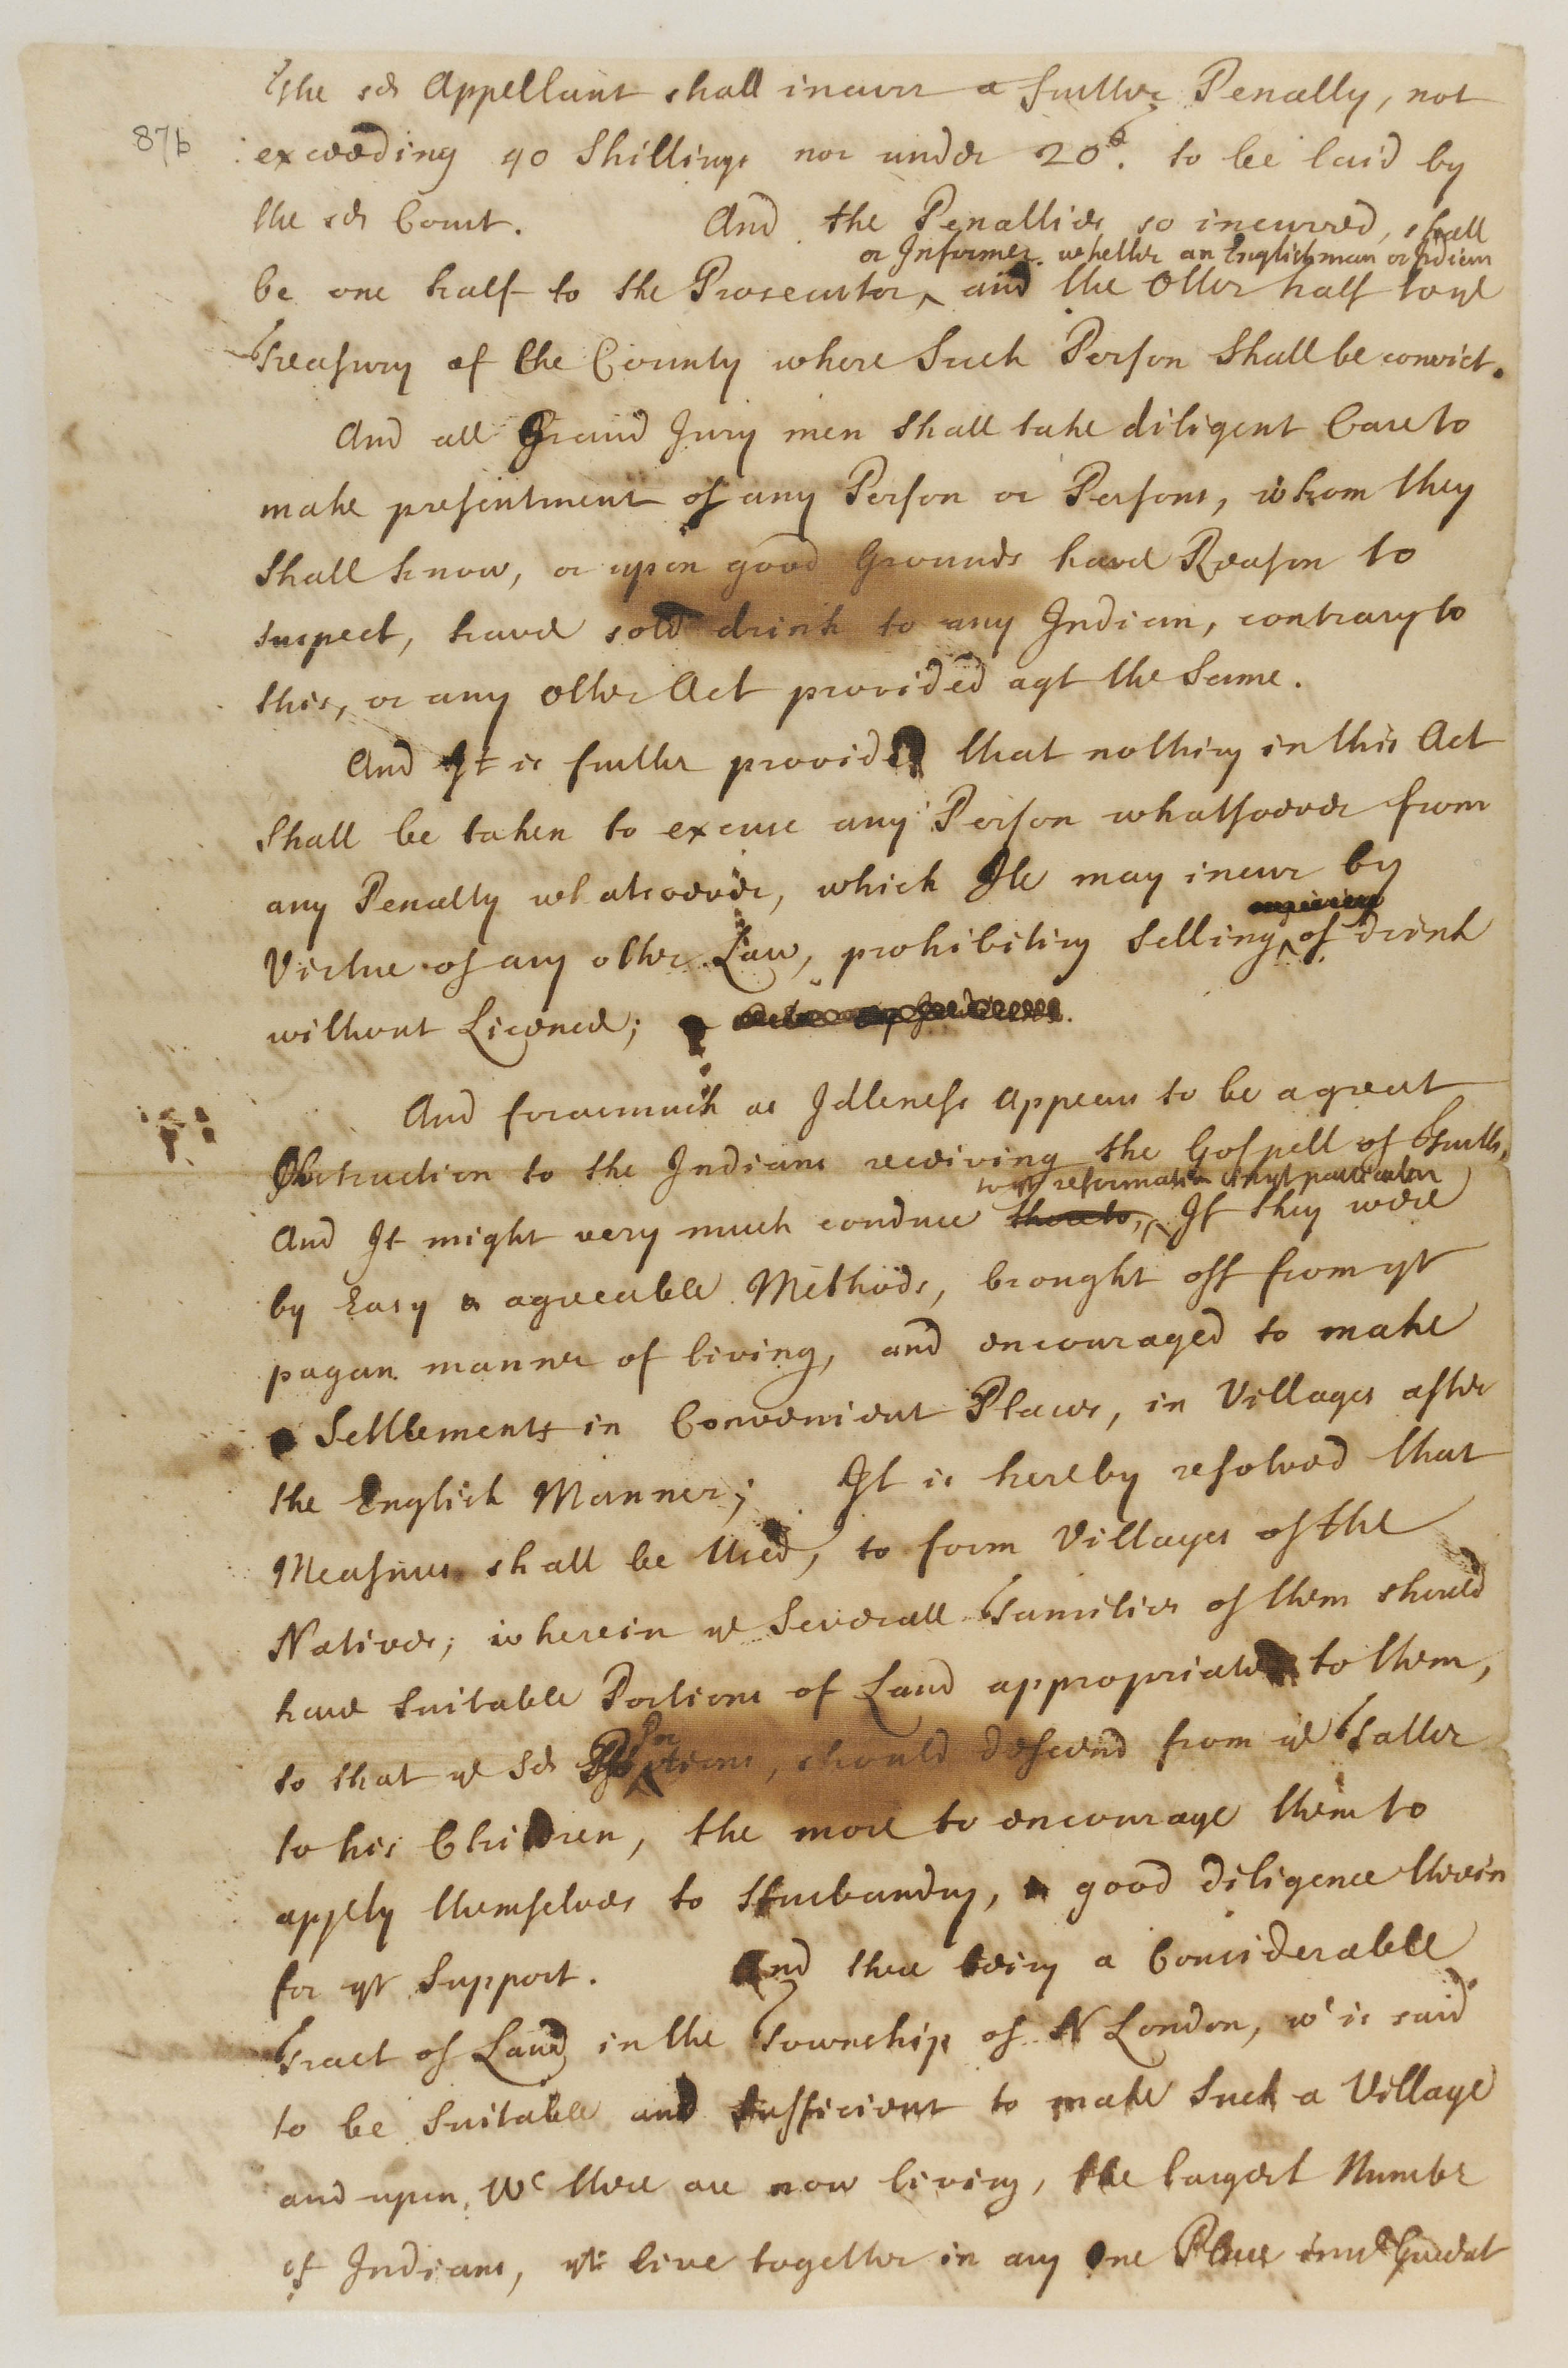 the sd Appellant shall incurr a further Penalty, not
87b
exceeding 40 Shillings nor under 20s. to be laid by
the sd Court. And the Penalties so incurred, shall
or Informer. whether an Englishman or Indian
be one half to the Prosecutor, and the Other half to ye
Treasury of the County where Such Person Shall be convict.
And all Grand Jury men Shall take diligent Care to
make presentment of any Person or Persons, whom they
Shall know, or upon good Grounds have Reason to
suspect, have sold drink to any Indian, contrary to
this, or any other Act provided agt the Same.
And It is further provided that nothing in this Act
Shall be taken to excuse any Person whatsoever from
any Penalty whatsoever, which He may incur by
Virtue of any other Law, prohibiting Selling of drink
without Licence;
And forasmuch as Idleness appears to be a great
Obstruction to the Indians receiving the Gospell of Truth,
to yr reformation in yt particular
And It might very much conduce thereto, If they were
by Easy & agreeable Methods, brought off from yr
pagan manner of living, and encouraged to make
Settlements in Convenient Places, in Villages after
the English Manner; It is hereby resolved that
Measures shall be Used, to form Villages of the
Natives; wherein ye Severall Families of them should
have Suitable Portions of Land appropriated to them,
Por
so that ye Sd tions, should descend from ye Father
to his Children, the more to encourage them to
apply themselves to Husbandry, & good diligence therein
for yr Support. And there being a Considerable
Tract of Land in the Township of N London, wc is said
to be Suitable and Sufficient to make Such a Village
and upon, Wc there are now living, the largest Number
of Indians, yt live together in any One Place in ye Goverat